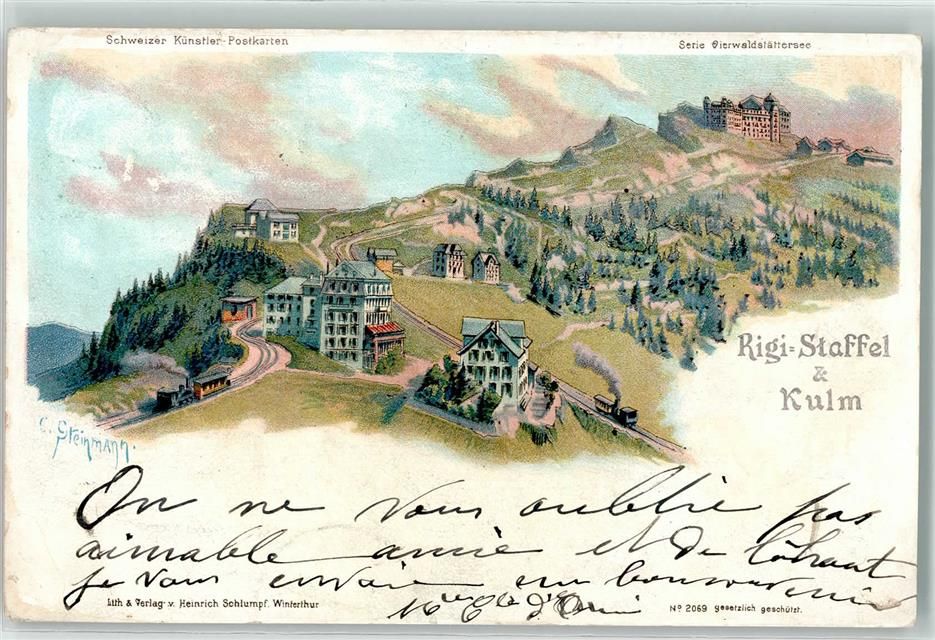 Schweizer Künstler-Postkarten
Serie Vierwaldstättersee
Rigi-Staffel
&
Kulm
C. Steinmann.
On ne vous oublie pas
aimable amie et de
je vous envoie un
Lith & Verlag v. Heinrich Schlumpf. Winterthur
No 2069 gesetzlich geschützt.